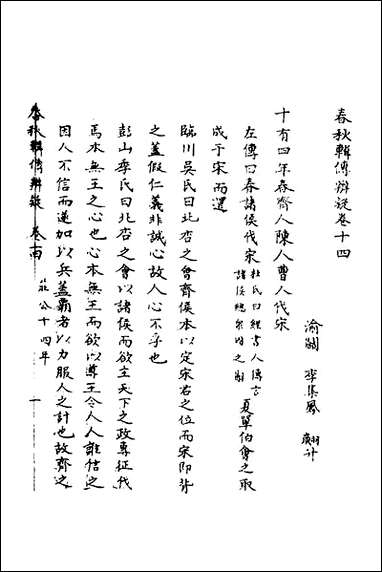 春秋輯傳辨疑卷十四
渝關 李集鳳 翽升
十有四年春齊人陳人曹人伐宋
左傳曰春諸侯伐宋杜氏曰經書人傳言諸侯總衆國之辭夏單伯會之取
成于宋而還
臨川吳氏曰北杏之會齊侯本以定宋君之位而宋卽背
之蓋假仁義非誠心故人心不孚也
彭山季氏曰北杏之會以諸侯而欲主天下之政專征伐
焉本無王之心也心本無王而欲以尊王令人人誰信之
因人不信而遽加以兵蓋霸者以力服人之計也故齊之
春秋輯傳辨疑 卷十四 莊公十四年 一